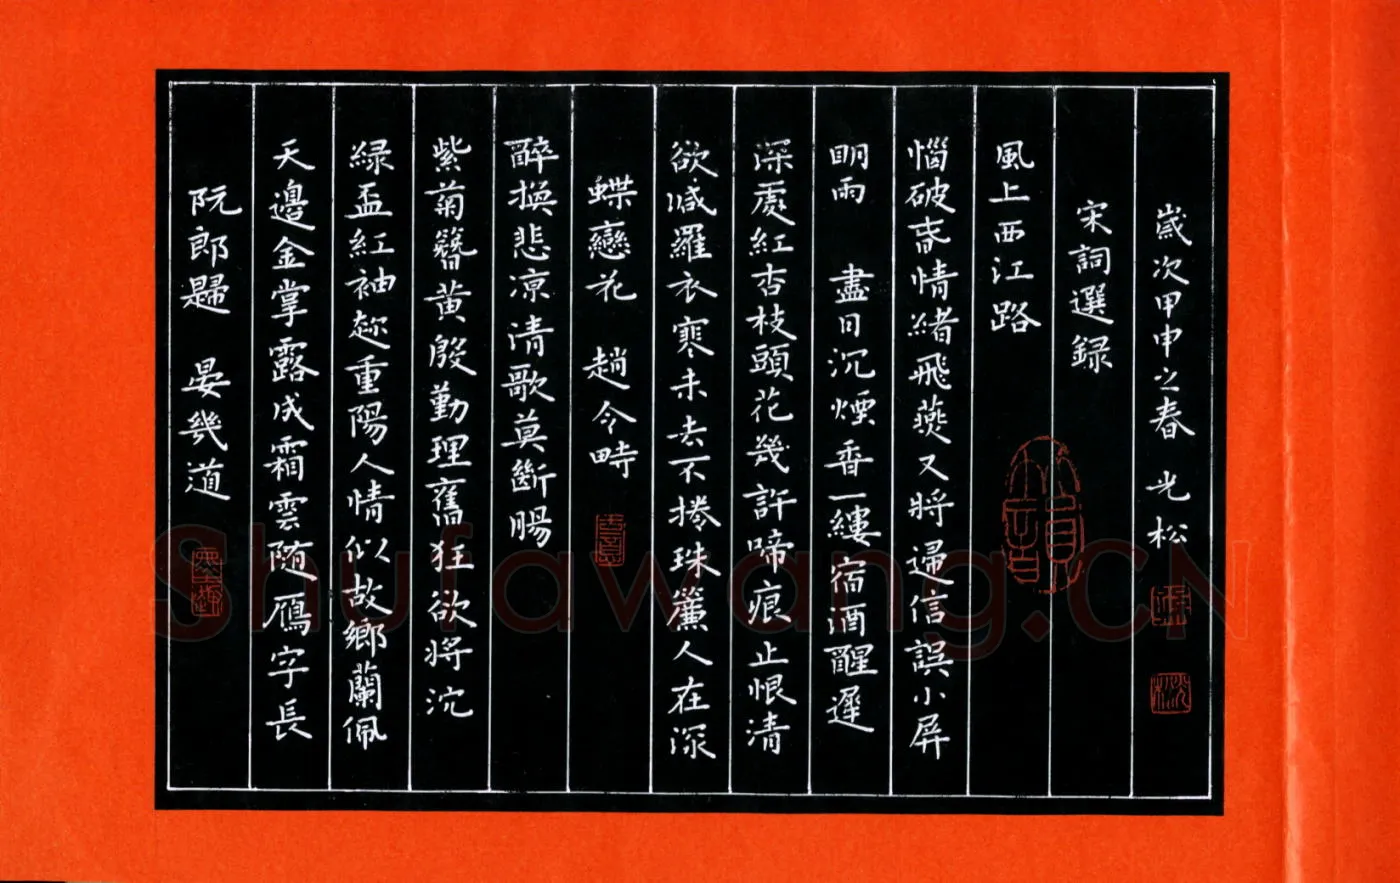 阮郎歸 晏幾道
天邊金掌露成霜雲随鴈字長
緑盃紅袖趂重陽人情似故鄉蘭佩
紫菊簪黄殷勤理舊狂欲將沉
醉換悲凉清歌莫斷腸
蝶戀花 趙令畤
欲减羅衣寒未去不捲珠簾人在深
深處紅杏枝頭花幾許啼痕止恨清
明雨 盡日沉煙香一縷宿酒醒遲
惱破春情緒飛燕又將歸信誤小屏
風上西江路
宋詞選録
歲次甲申之春 光松
Shufawang.CN